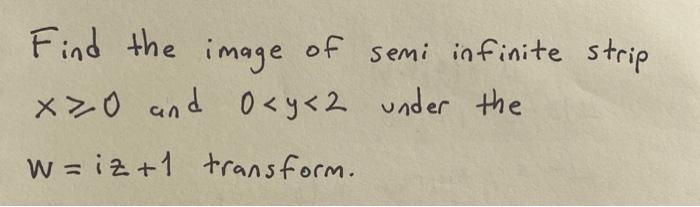 Find the image of semi infinite strip
x⩾0 and 0<y<2 under the
w = iz+1 transform.